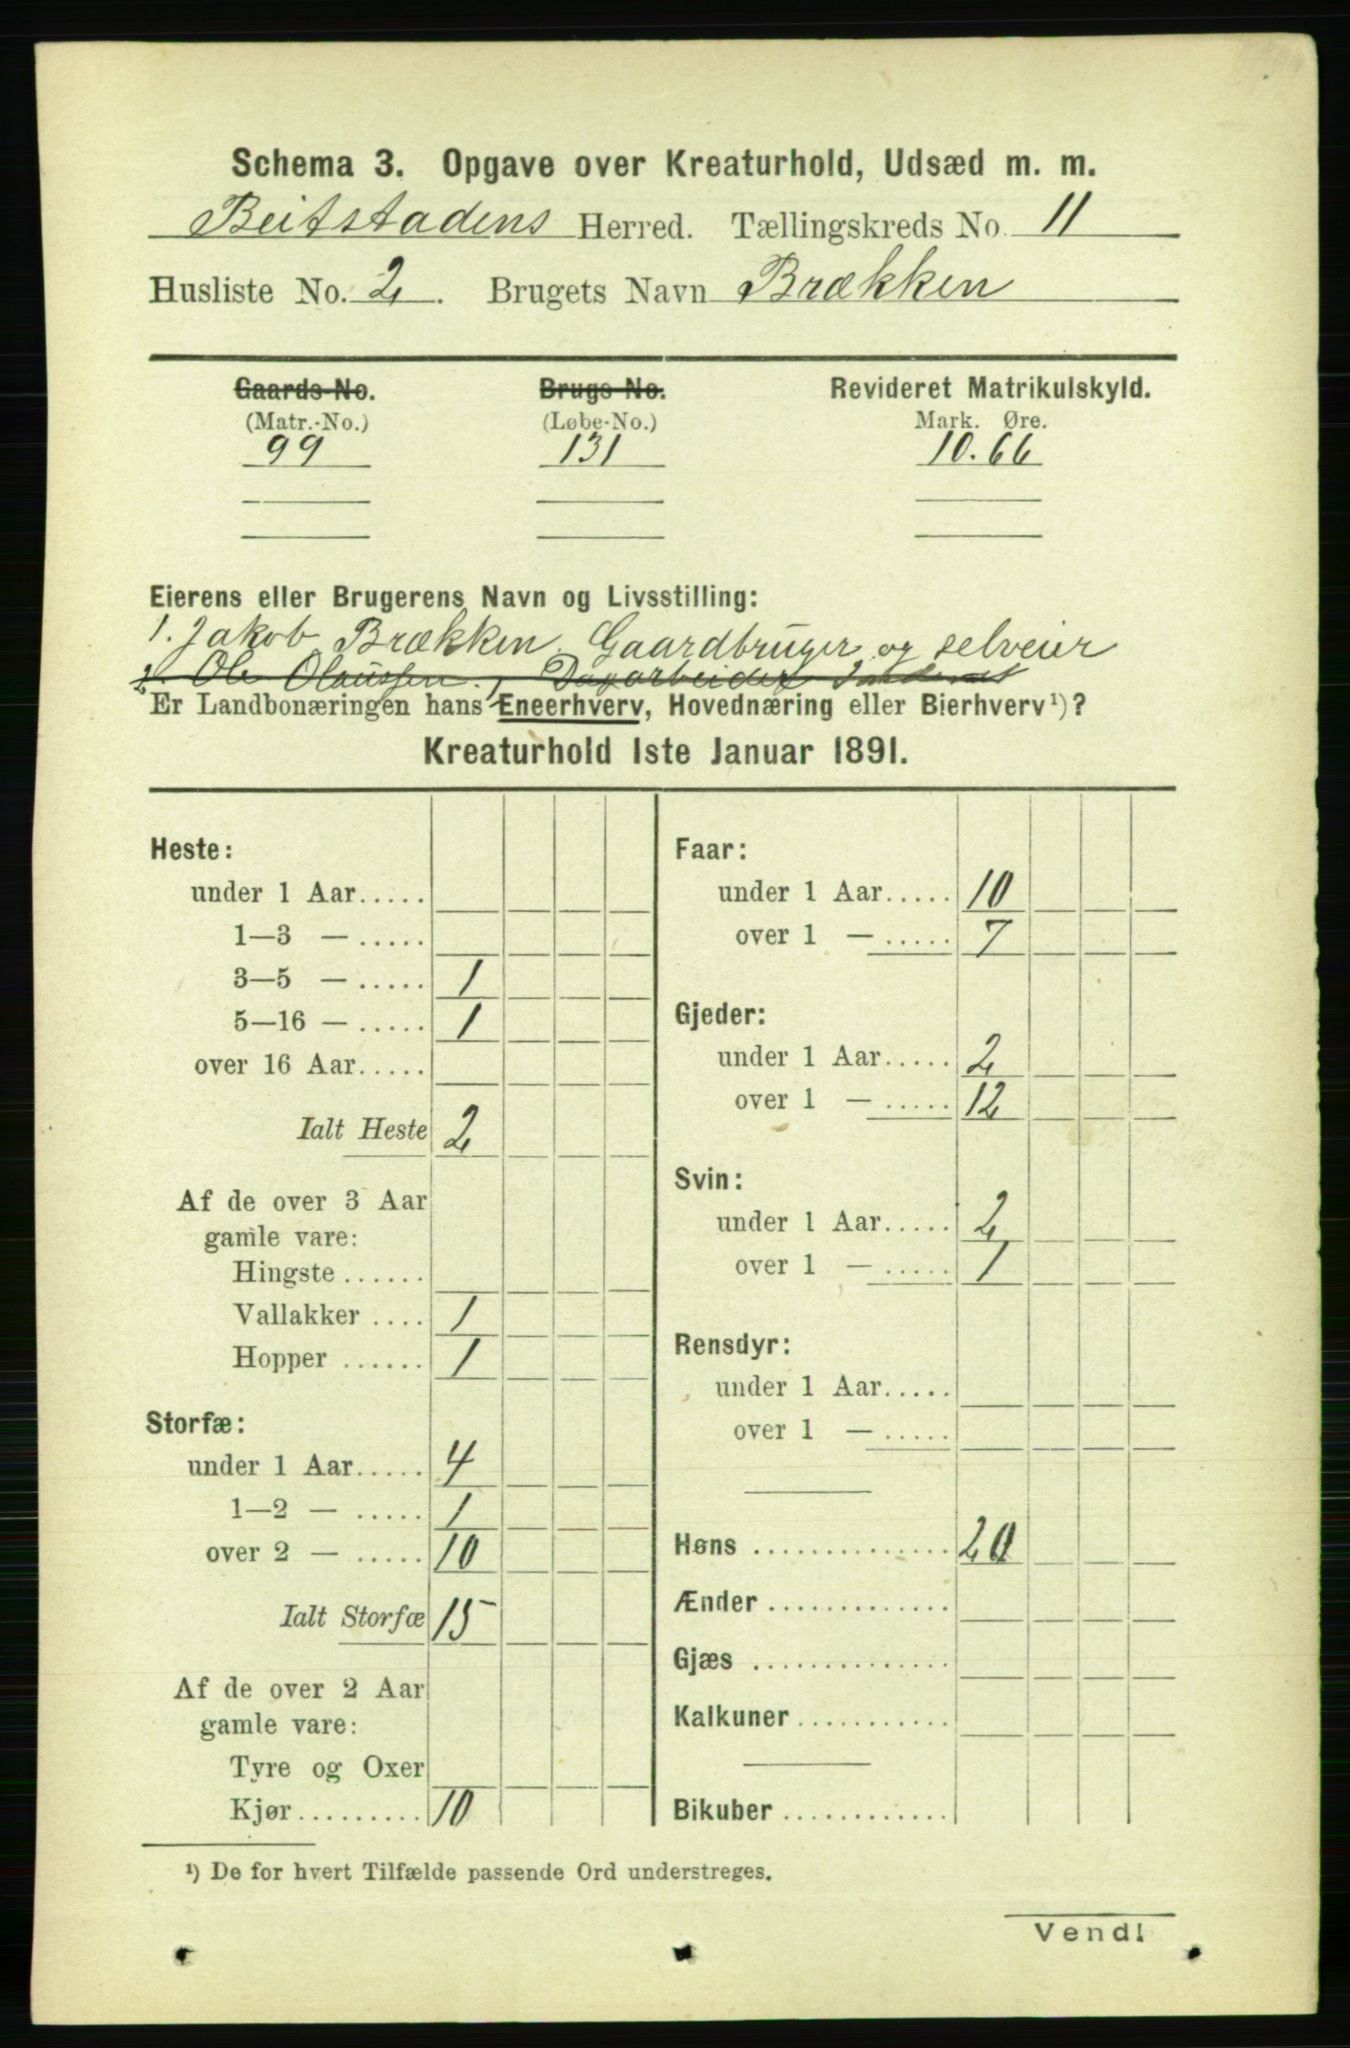 Schema 3. Opgave over Kreaturhold, Udsæd m. m.
Beitstadens Herred. Tællingskreds No. 11
Husliste No. 2. Brugets Navn Brækken
Gaards-No. Brugs-No. Revideret Matrikulskyld.
(Matr.-No.) (Løbe-No.) Mark. Øre.
99 131 10.66
Eierens eller Brugerens Navn og Livsstilling:
1. Jakob Brækken. Gaardbruger og selveier
2. Ole Olaussen, Dagarbeider
Er Landbonæringen hans Eneerhverv, Hovednæring eller Bierhverv¹)?
Kreaturhold 1ste Januar 1891.
Heste:
under 1 Aar.....
1—3 — .....
3—5 — ..... 1
5—16 — ..... 1
over 16 Aar.....
Ialt Heste 2
Af de over 3 Aar
gamle vare:
Hingste ......
Vallakker .... 1
Hopper ...... 1
Storfæ:
under 1 Aar..... 4
1—2 — ..... 1
over 2 — ..... 10
Ialt Storfæ 15
Af de over 2 Aar
gamle vare:
Tyre og Oxer
Kjør......... 10
Faar:
under 1 Aar..... 10
over 1 — ..... 7
Gjeder:
under 1 Aar..... 2
over 1 — ..... 12
Svin:
under 1 Aar..... 2
over 1 — ..... 1
Rensdyr:
under 1 Aar.....
over 1 — .....
Høns .............. 20
Ænder .............
Gjæs ..............
Kalkuner...........
Bikuber ............
¹) De for hvert Tilfælde passende Ord understreges.
Vend!